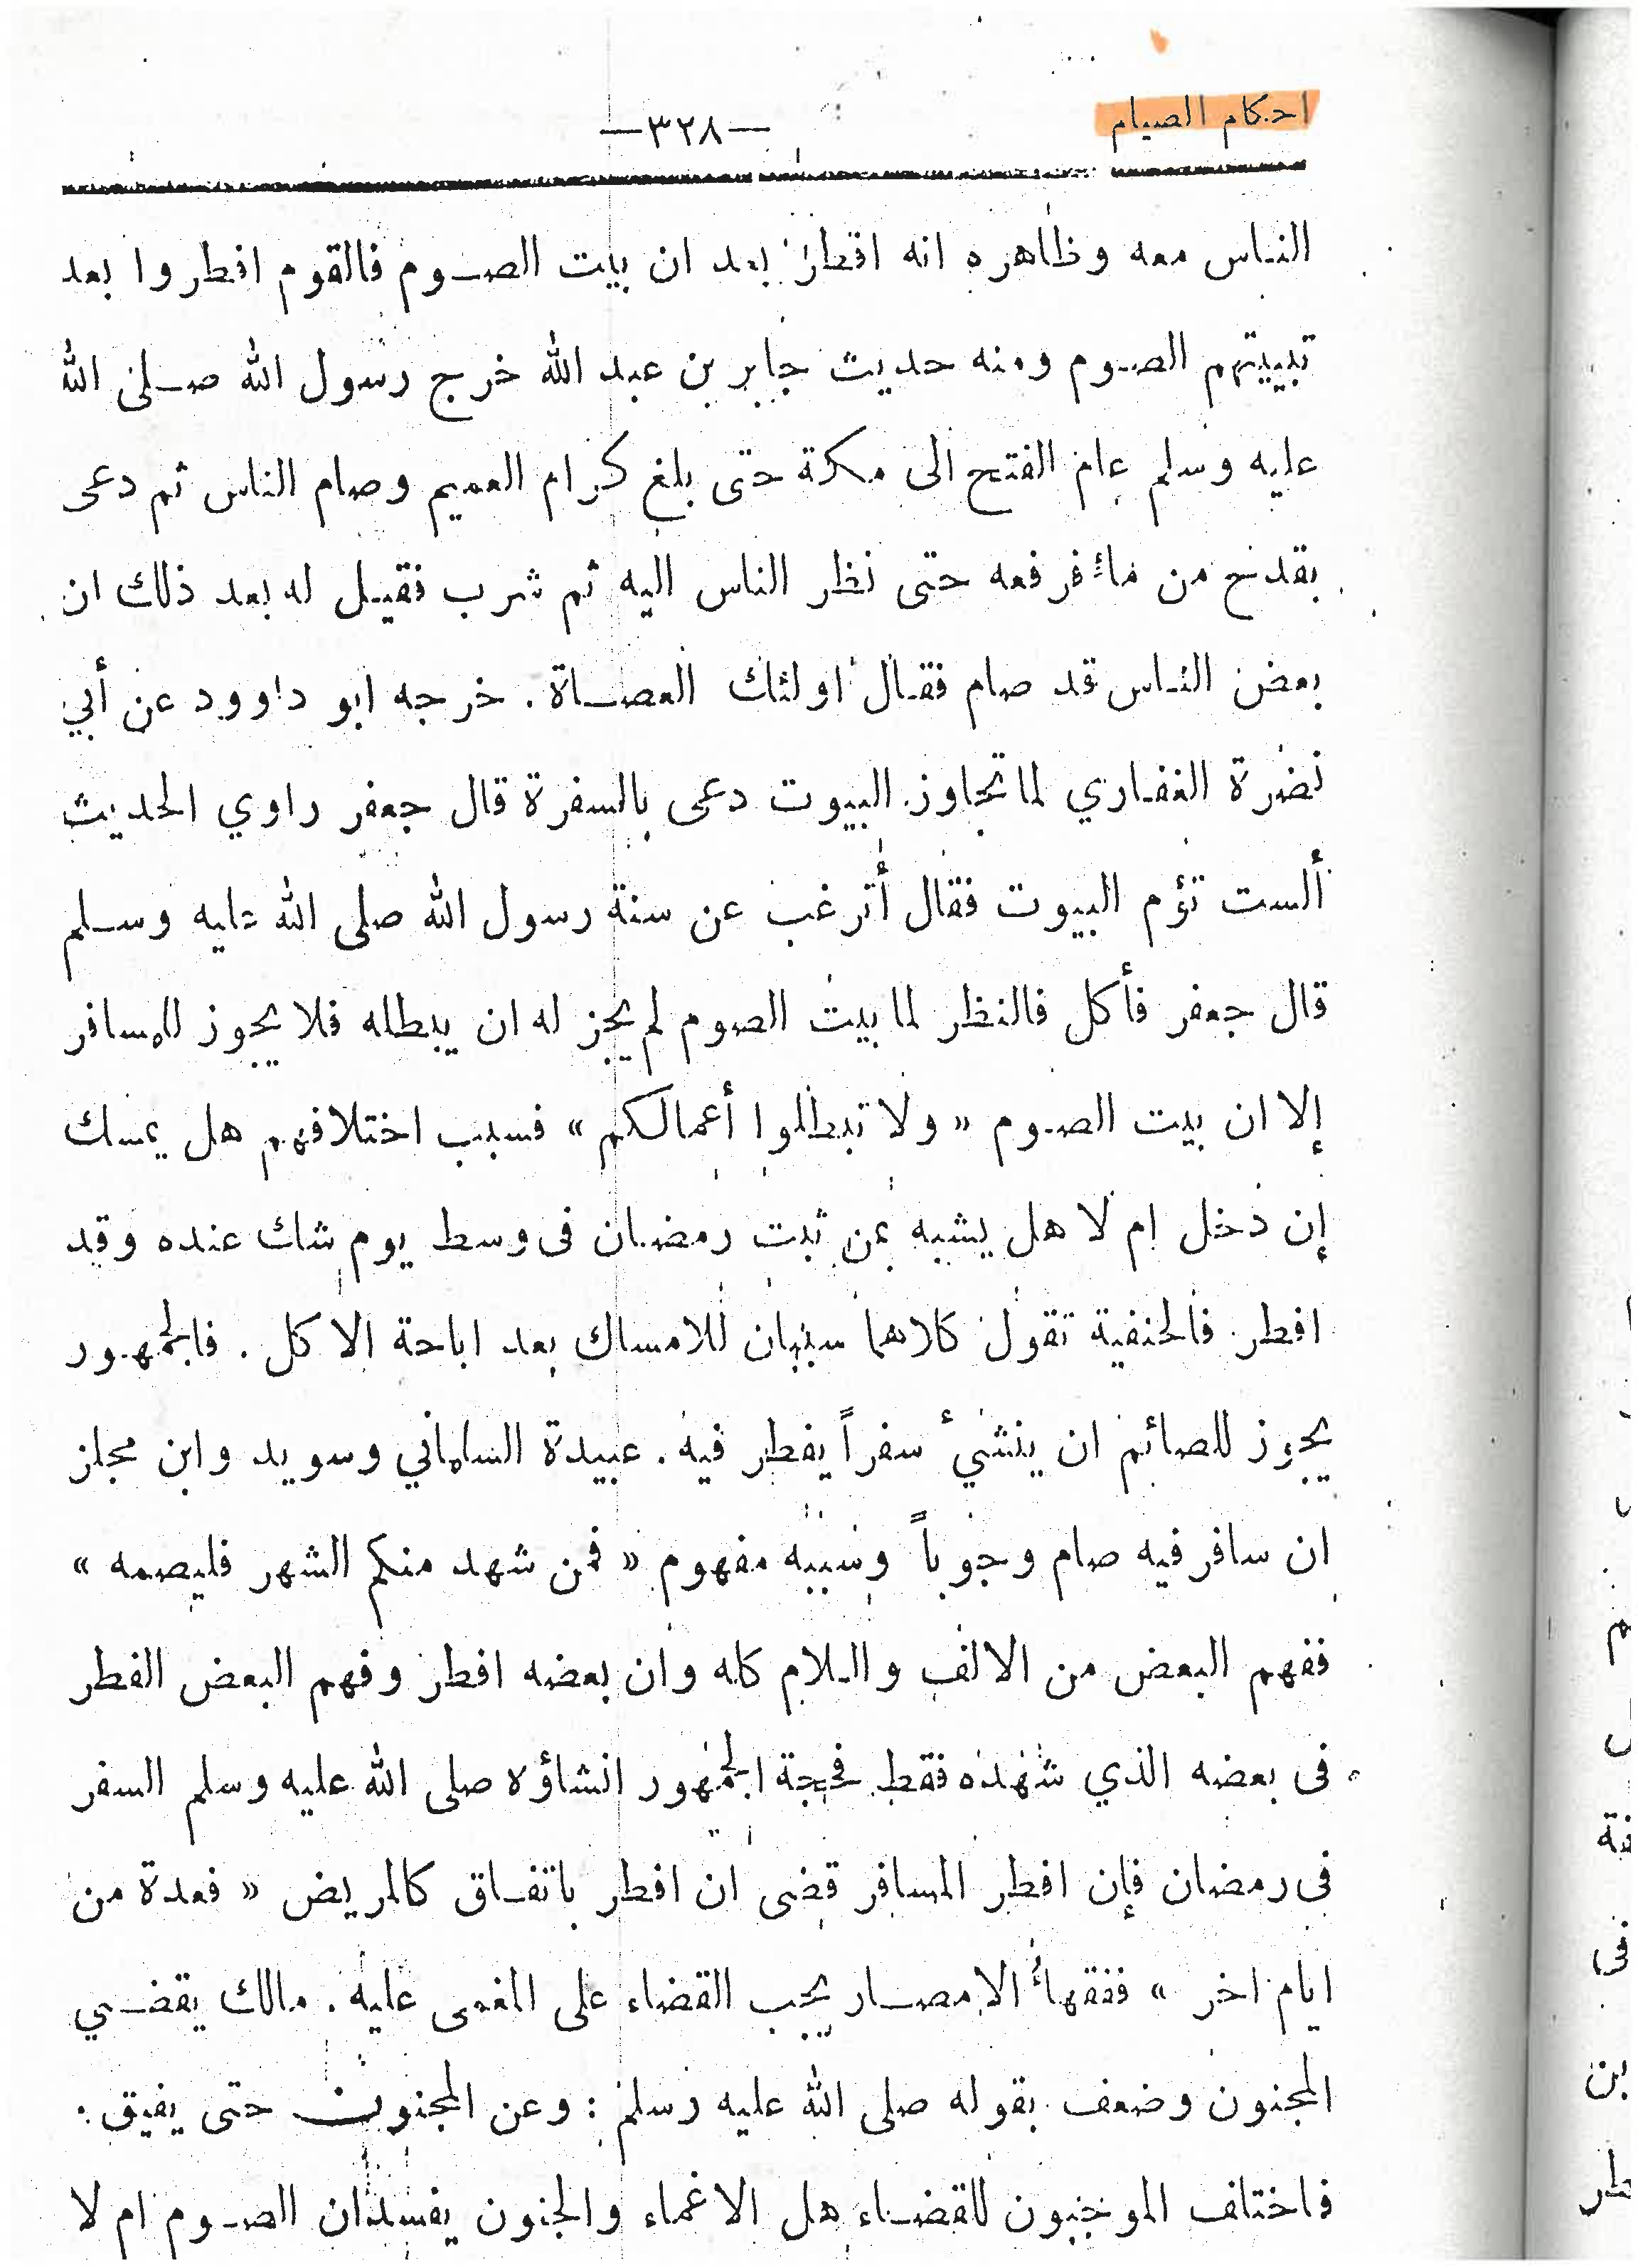 احكام الصيام
—٣٢٨—
الناس معه وظاهره انه افطر بعد ان بيت الصوم فالقوم افطروا بعد
تبييتهم الصوم ومنه حديث جابر بن عبد الله خرج رسول الله صلى الله
عليه وسلم عام الفتح الى مكة حتى بلغ كرام العميم وصام الناس ثم دعى
بقدح من ماء فرفعه حتى نظر الناس اليه ثم شرب فقيل له بعد ذلك ان
بعض الناس قد صام فقال اولئك العصاة . خرجه ابو داوود عن أبي
نضرة الغفاري لما تجاوز البيوت دعى بالسفرة قال جعفر راوي الحديث
ألست تؤم البيوت فقال أترغب عن سنة رسول الله صلى الله عليه وسلم
قال جعفر فأكل فالنظر لما بيت الصوم لم يجز له ان يبطله فلا يجوز للمسافر
إلا ان بيت الصوم « ولا تبطلوا أعمالكم » فسبب اختلافهم هل يمسك
إن دخل ام لا هل يشبه بمن ثبت رمضان فى وسط يوم شاك عنده وقد
افطر . فالحنفية تقول كلاهما سببان للامساك بعد اباحة الاكل . فالجمهور
يجوز للصائم ان ينشيء سفراً يفطر فيه . عبيدة السلماني وسويد وابن مجلز
ان سافر فيه صام وجوباً وسببه مفهوم « فمن شهد منكم الشهر فليصمه »
ففهم البعض من الالف واللام كله وان بعضه افطر وفهم البعض الفطر
فى بعضه الذي شهده فقط فحجة الجمهور انشاؤه صلى الله عليه وسلم السفر
فى رمضان فإن افطر المسافر قضى ان افطر باتفاق كالمريض « فعدة من
ايام اخر » ففقهاء الامصار يجب القضاء على المغمى عليه . مالك يقضي
المجنون وضعف بقوله صلى الله عليه وسلم : وعن المجنون حتى يفيق .
فاختلف الموجبون للقضاء هل الاغماء والجنون يفسدان الصوم ام لا